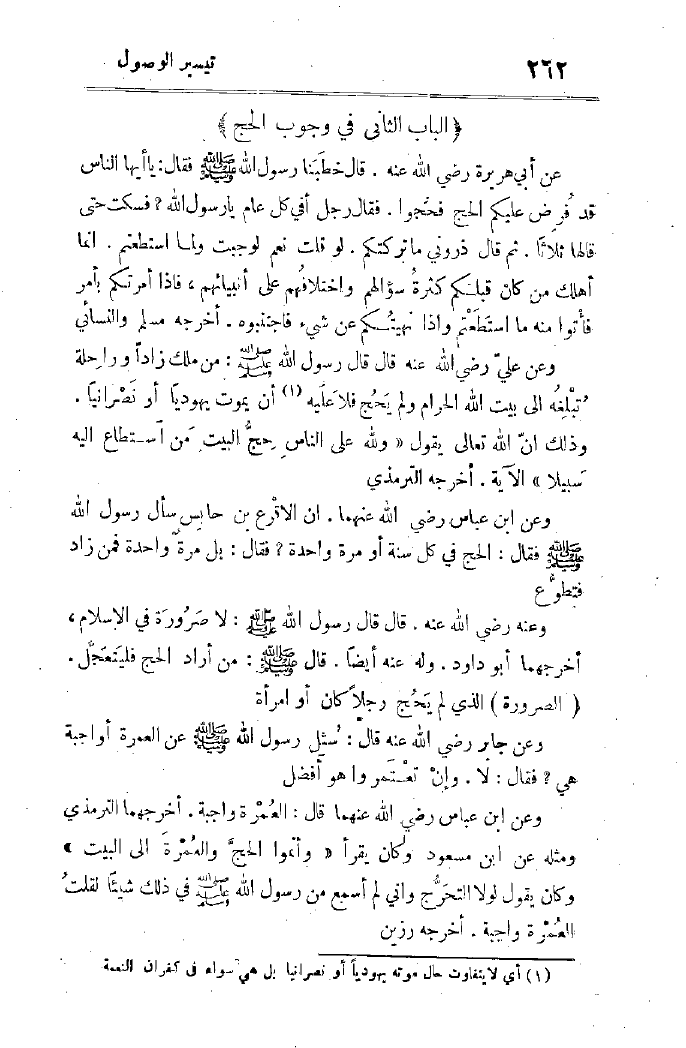 ٢٦٢ تيسير الوصول
﴿ الباب الثاني في وجوب الحج ﴾
عن أبي هريرة رضي الله عنه . قال خطبَنا رسول الله ﷺ فقال: ياأيها الناس
قد فُرِض عليكم الحج فحُجوا . فقال رجل أفي كل عام يارسول الله ? فسكت حتى
قالها ثلاثًا . ثم قال ذروني ماتركتكم . لو قلت نعم لوجبت ولما استطعتم . انما
أهلك من كان قبلَكم كثرةُ سؤالهم واختلافُهم على أنبيائهم ، فاذا أمرتكم بأمر
فأتوا منه ما استَطَعْتم واذا نهيتُكم عن شيء فاجتنبوه . أخرجه مسلم والنسائي
وعن عليّ رضي الله عنه قال قال رسول الله ﷺ : من ملك زاداً وراحلة
تُبْلِغُه الى بيت الله الحرام ولم يَحُج فلا عَلَيه (١) أن يموت يهودياً أو نَصْرانياً .
وذلك انّ الله تعالى يقول « ولله على الناس حِجُّ البيت مَن آستطاع اليه
سَبيلا » الآية . أخرجه الترمذي
وعن ابن عباس رضي الله عنهما . ان الاقرع بن حابس سأل رسول الله
ﷺ فقال : الحج في كل سنة أو مرة واحدة ? فقال : بل مرةً واحدة فمن زاد
فتطوُّع
وعنه رضي الله عنه . قال قال رسول الله ﷺ : لا صَرُورَة في الإسلام ،
أخرجهما أبو داود . وله عنه أيضاً . قال ﷺ : من أراد الحج فليتَعجَّل .
( الصرورة ) الذي لم يَحُج رجلاً كان أو امرأة
وعن جابر رضي الله عنه قال : سُئِل رسول الله ﷺ عن العمرة أواجبة
هي ? فقال : لا . وإنْ تعْتَمروا هو أفضل
وعن ابن عباس رضي الله عنهما قال : العُمْرة واجبة . أخرجهما الترمذي
ومثله عن ابن مسعود وكان يقرأ « وأتموا الحجَّ والعُمْرةَ الى البيت »
وكان يقول لولا التحَرُّج واني لم أسمع من رسول الله ﷺ في ذلك شيئًا لقلتُ
العُمْرة واجبة . أخرجه رزين
(١) أي لا يتفاوت حال موته يهودياً أو نصرانيا بل هي سواء في كفران النعمة